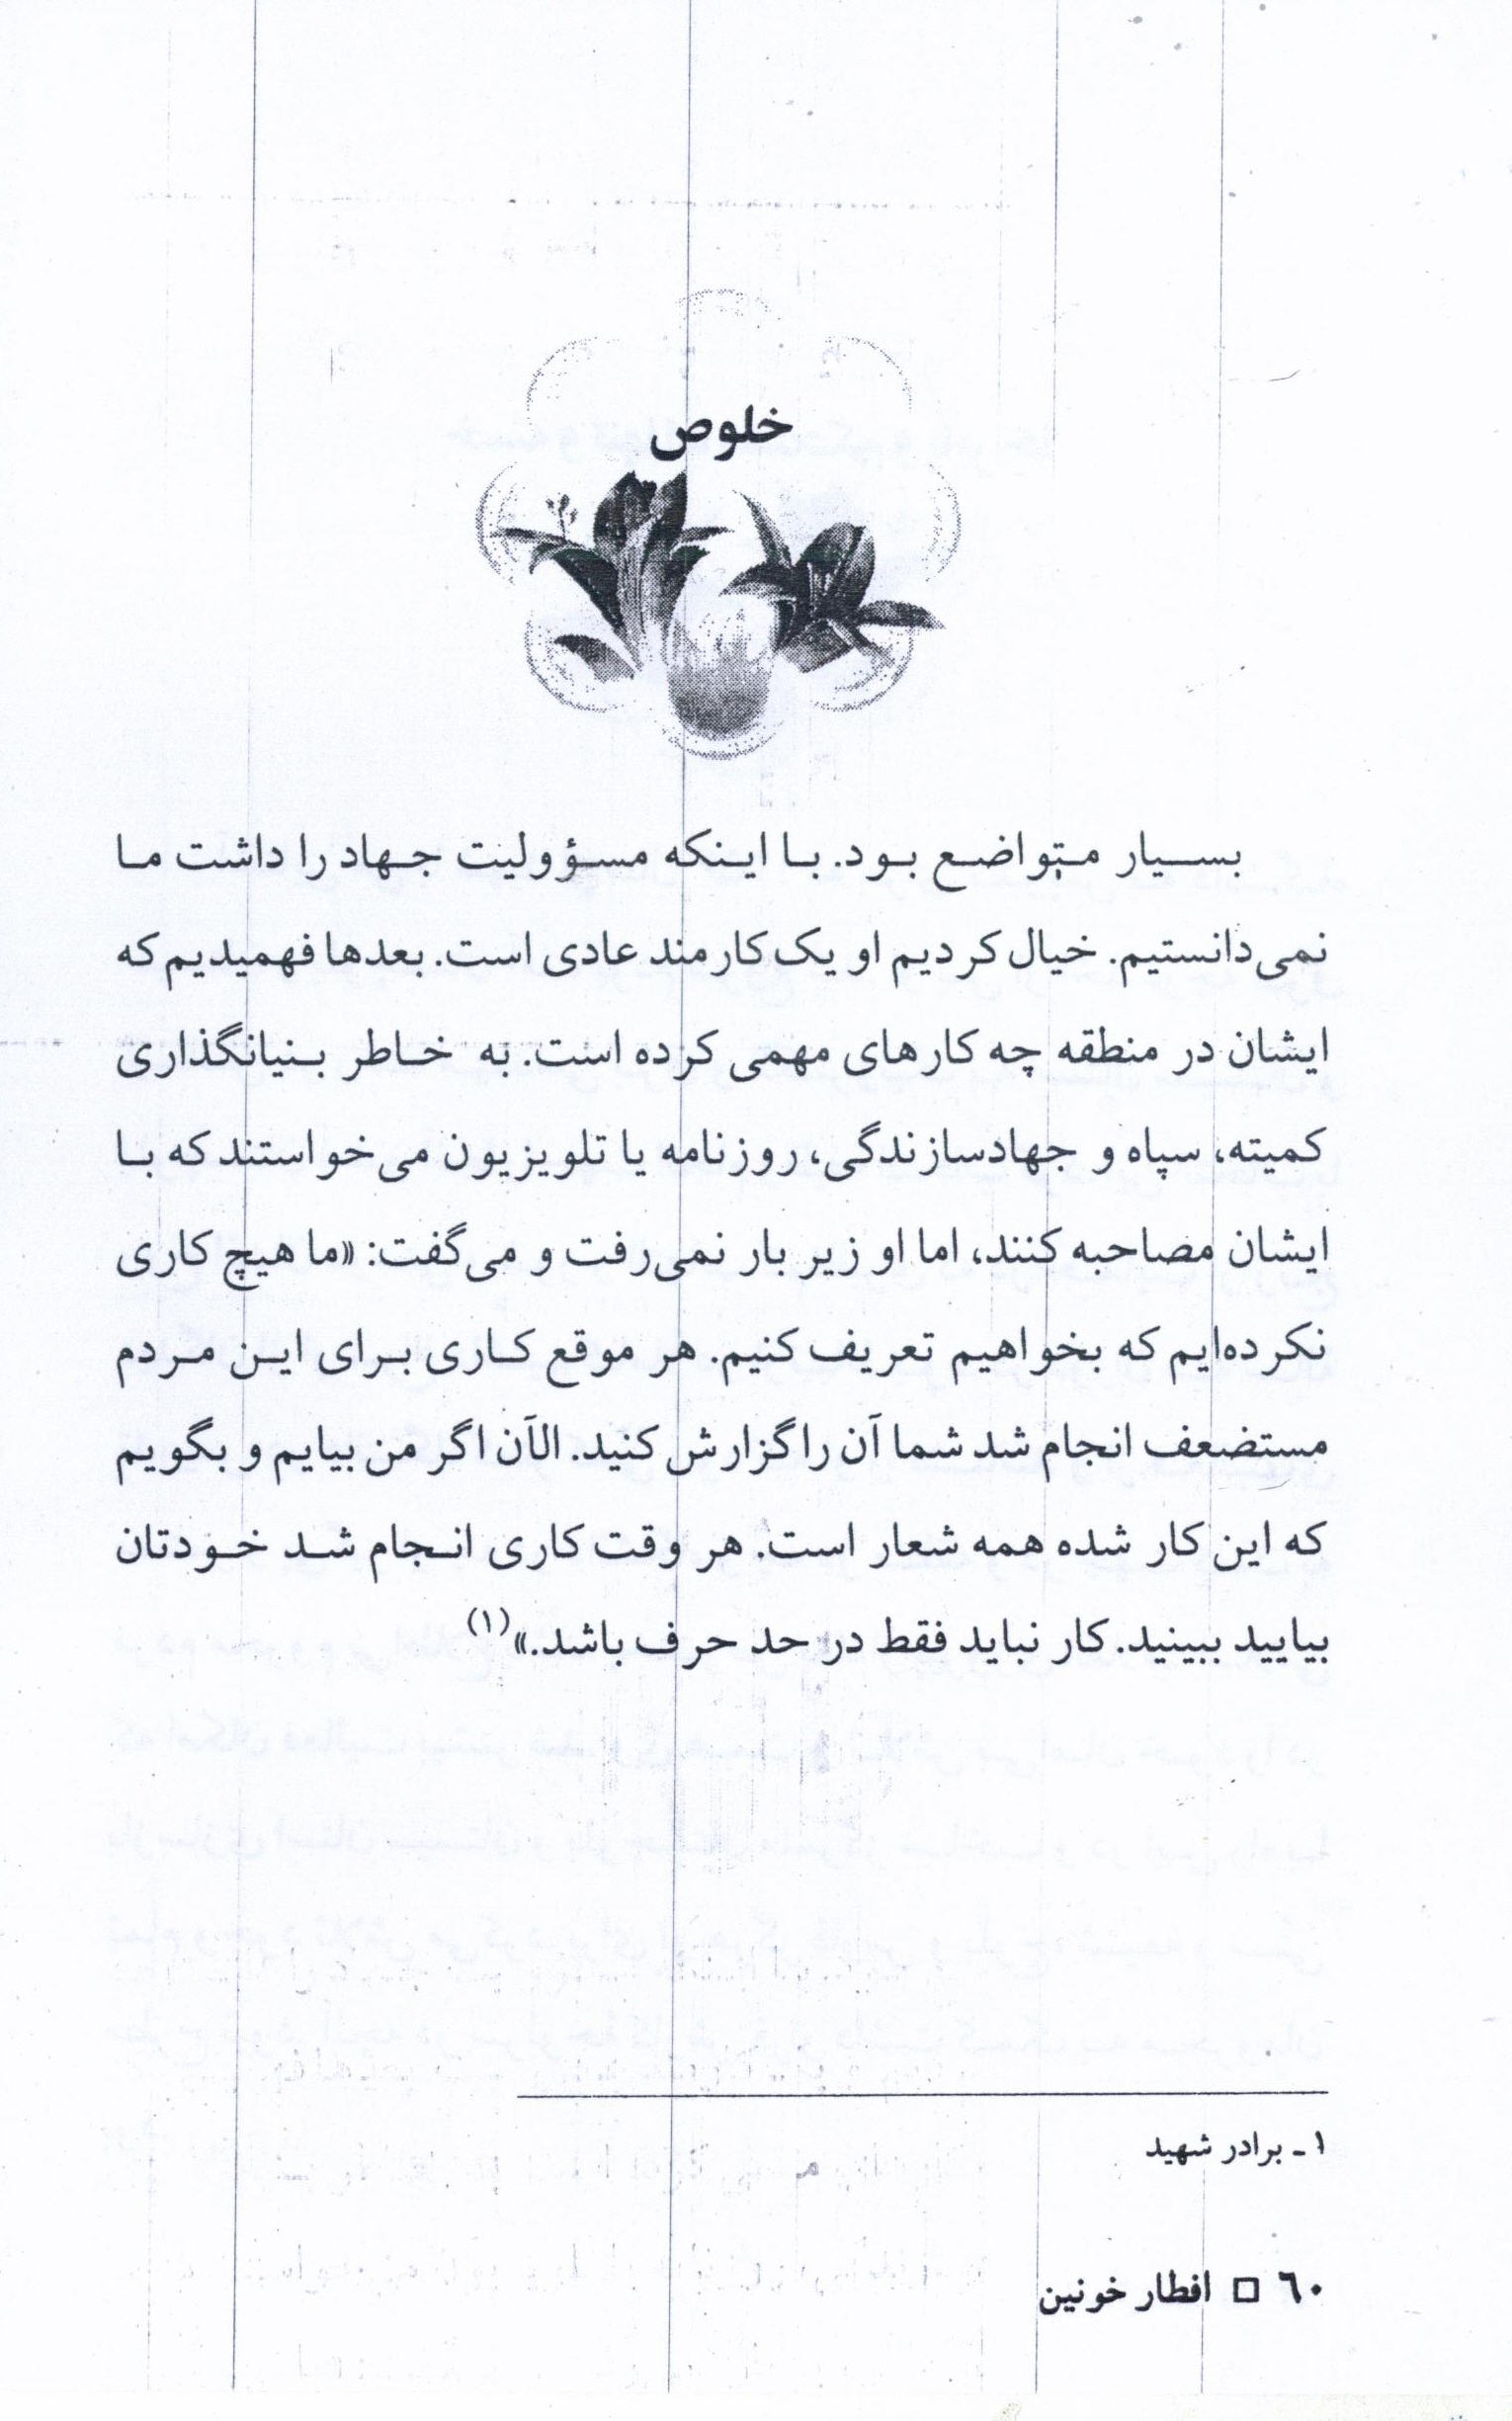 خلوص
بسیار متواضع بود. با اینکه مسؤولیت جهاد را داشت ما
نمی‌دانستیم. خیال کردیم او یک کارمند عادی است. بعدها فهمیدیم که
ایشان در منطقه چه کارهای مهمی کرده است. به خاطر بنیانگذاری
کمیته، سپاه و جهادسازندگی، روزنامه یا تلویزیون می‌خواستند که با
ایشان مصاحبه کنند، اما او زیر بار نمی‌رفت و می‌گفت: «ما هیچ کاری
نکرده‌ایم که بخواهیم تعریف کنیم. هر موقع کاری برای این مردم
مستضعف انجام شد شما آن را گزارش کنید. الآن اگر من بیایم و بگویم
که این کار شده همه شعار است. هر وقت کاری انجام شد خودتان
بیایید ببینید. کار نباید فقط در حد حرف باشد.»(۱)
۱ ـ برادر شهید
۶۰ □ افطار خونین